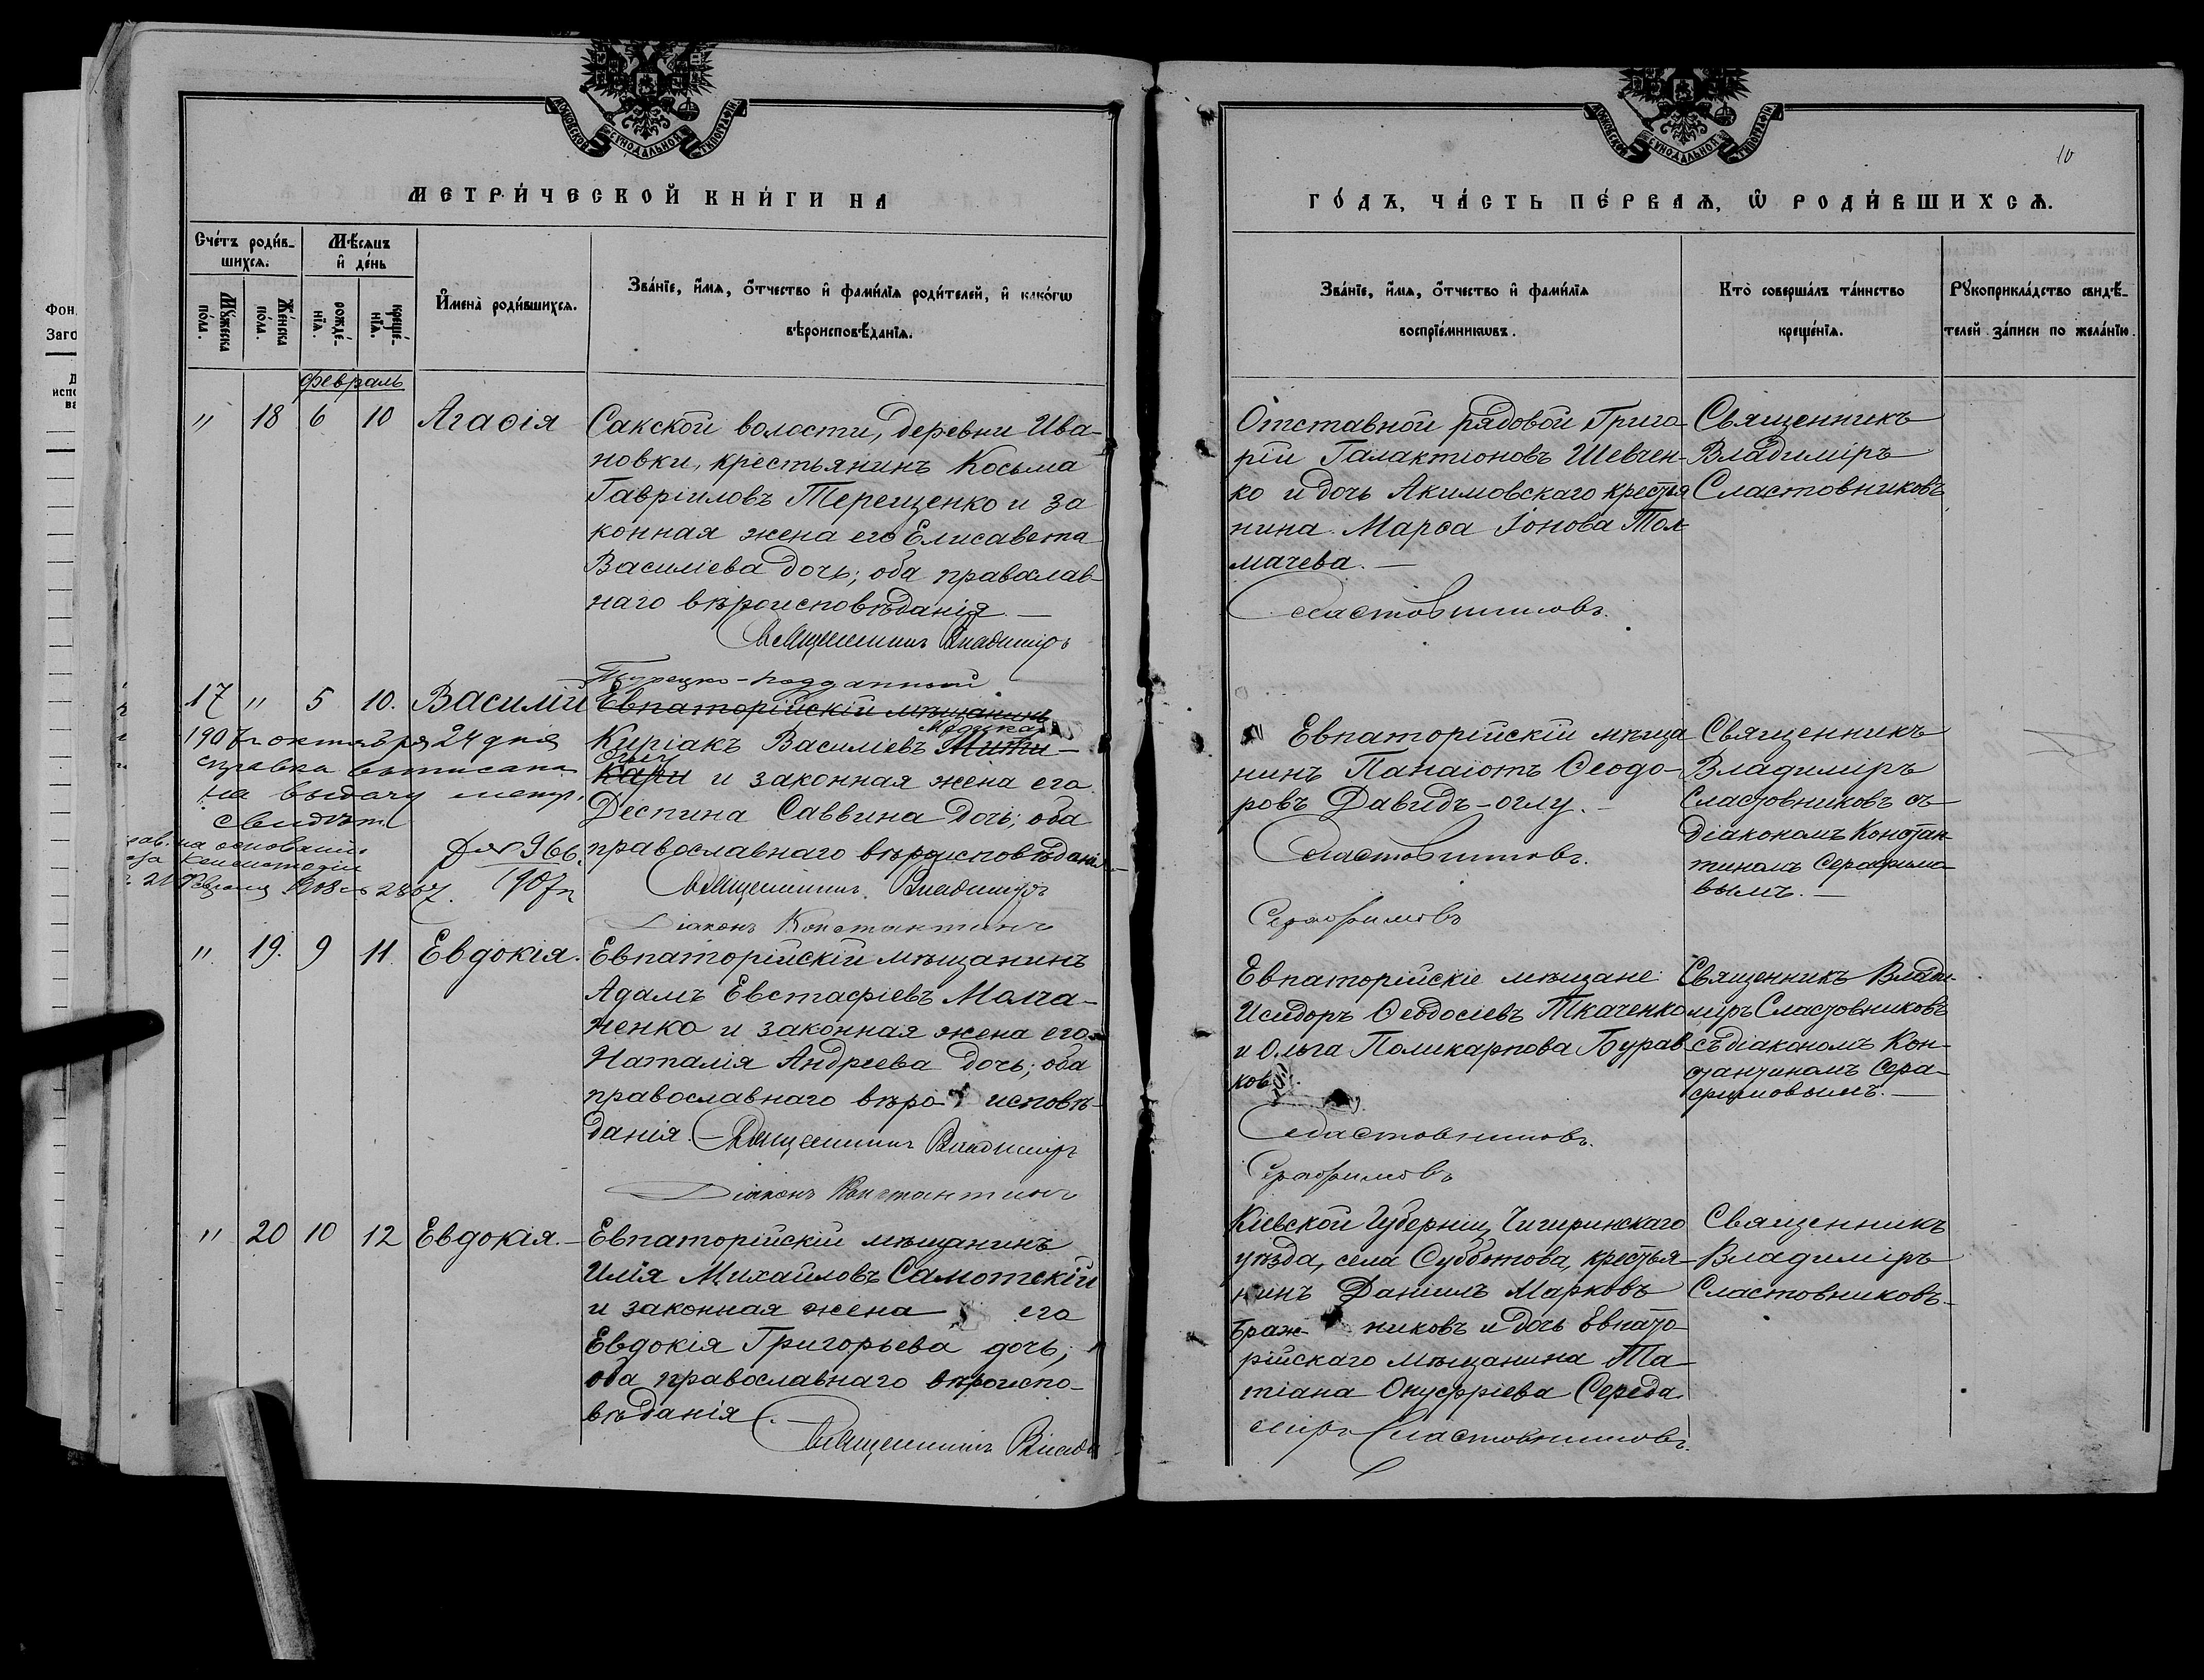 МОСКОВСКОЙ СѴНОДАЛЬНОЙ ТИПОГРАФІИ
МЕТРИ́ЧЕСКОЙ КНИ́ГИ НА
Сче́тъ роди́в-
шихсѧ.
Мѣ́сѧцъ
и҆ де́нь
Мꙋ́жеска
по́ла.
Же́нска
по́ла.
рожде́-
нїѧ.
креще́-
нїѧ.
И҆мена̀ роди́вшихсѧ.
Зва́нїе, и҆́мѧ, ѻ҆́тчество и҆ фами́лїѧ роди́телей, и҆ како́гѡ
вѣроисповѣ́данїѧ.
февраль
" 18 6 10 Агаѳія
Сакской волости, деревни Ива-
новки, крестьянинъ Косьма
Гавріиловъ Терещенко и за
конная жена его Елисавета
Василіева дочь; оба православ-
наго вѣроисповѣданія —
Священникъ Владиміръ
Турецко-подданный
17 " 5 10. Василій
Евпаторійскій мѣщанинъ
Киріакъ Василіевъ
Кари и законная жена его
Деспина Саввина дочь; оба
православнаго вѣроисповѣданія
Священникъ Владиміръ
Діаконъ Константинъ
1907 г октября 24 дня
справка выписана
на выдачу метр.
свидѣт
на основаніи
Консисторіи
21 1908 2867.
966.
1907 г
" 19. 9 11. Евдокія.
Евпаторійскій мѣщанинъ
Адамъ Евстафіевъ Молча-
ненко и законная жена его
Наталія Андреева дочь; оба
православнаго вѣро исповѣ-
данія. — Священникъ Владиміръ
Діаконъ Константинъ
" 20 10 12 Евдокія. —
Евпаторійскій мѣщанинъ
Илія Михайловъ Самотскій
и законная жена его
Евдокія Григорьева дочь;
оба православнаго вѣроиспо-
вѣданія. —
Священникъ Влади
МОСКОВСКОЙ СѴНОДАЛЬНОЙ ТИПОГРАФІИ
10
ГО́ДЪ, ЧА́СТЬ ПЕ́РВАѦ, Ѡ҆ РОДИ́ВШИХСѦ.
Зва́нїе, и҆́мѧ, ѻ҆́тчество и҆ фами́лїѧ
воспрїе́мникѡвъ.
Кто̀ соверша́лъ та́инство
креще́нїѧ.
Рꙋкоприкла́дство свидѣ́-
телей за́писи по жела́нїю.
Отставной рядовой Григо-
рій Галактіоновъ Шевчен-
ко и дочь Акимовскаго крестья
нина Марѳа Іонова Тол-
мачева. —
Сластовниковъ.
Священникъ
Владиміръ
Сластовниковъ
Евпаторійскій мѣща
нинъ Панаіотъ Ѳеодо-
ровъ Давидъ-оглу. —
Сластовниковъ.
Серафимовъ
Священникъ
Владиміръ
Сластовниковъ съ
діакономъ Констан-
тиномъ Серафимо
вымъ. —
Евпаторійскіе мѣщане:
Исидоръ Ѳеодосіевъ Ткаченко
и Ольга Поликарпова Бурав-
кова.
Сластовниковъ.
Серафимовъ
Священникъ Влади-
міръ Сластовниковъ
съ діакономъ Кон-
стантиномъ Сера-
фимовымъ. —
Кіевской Губерніи, Чигиринскаго
уѣзда, села Субботова, крестья-
нинъ Даніилъ Марковъ
Браж- никовъ и дочь Евпато-
рійскаго мѣщанина Та-
тіана Онуфріева Середа.
міръ Сластовниковъ.
Священникъ
Владиміръ
Сластовниковъ. —